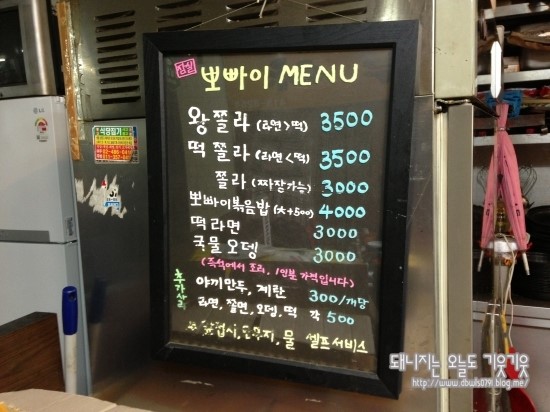 잠실 뽀빠이 MENU
왕쫄라 (라면>떡) 3500
떡쫄라 (라면<떡) 3500
쫄라 (짜장가능) 3000
뽀빠이볶음밥 (大+500) 4000
떡라면 3000
국물오뎅 3000
(즉석에서 조리, 1인분 가격입니다)
추가사리
야끼만두, 계란 300/개당
라면, 쫄면, 오뎅, 떡 각 500
앞접시, 단무지, 물 셀프서비스
LG
식당정기
돼지는 오늘도 기웃기웃
http://www.dbwls079.blog.me/